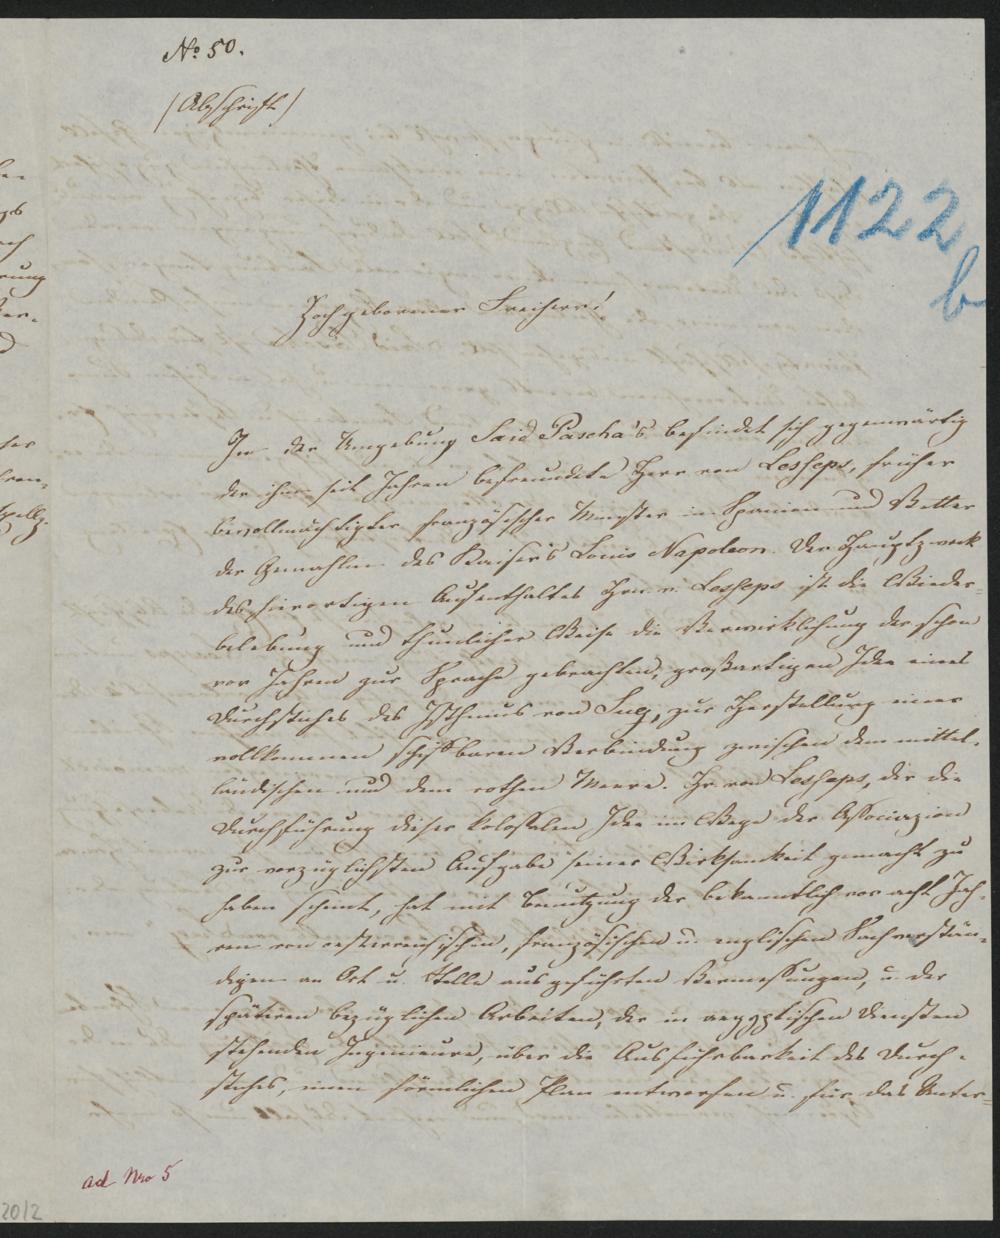 No. 50.
(Abschrift)
1122
b
Hochgeborener Freiherr!
In der Umgebung Said Pascha's befindet sich gegenwärtig
der ihm seit Jahren befreundete Herr von Lesseps, früher
bevollmächtigter französischer Minister in Spanien und Vetter
der Gemahlin des Kaisers Louis Napoleon. Der Hauptzweck
des hierortigen Aufenthaltes Hrn. v. Lesseps ist die Wieder=
belebung und thunlicher Weise die Verwirklichung der schon
vor Jahren zur Sprache gebrachten, großartigen Idee eines
Durchstiches des Isthmus von Suez, zur Herstellung einer
vollkommen schiffbaren Verbindung zwischen dem mittel-
ländischen und dem rothen Meere. Hr. von Lesseps, der die
Durchführung dieser kolossalen Idee im Wege der Associazion
zur vorzüglichsten Aufgabe seiner Wirksamkeit gemacht zu
haben scheint, hat mit Benützung der bekanntlich vor acht Jah-
ren von oesterreichischen, französischen u. englischen Sachverstän-
digen an Ort u. Stelle ausgeführten Vermessungen, u. der
späteren bezüglichen Arbeiten, der in aegyptischen Diensten
stehenden Ingenieure, über die Ausführbarkeit des Durch-
stiches, einen förmlichen Plan entworfen u. für das Unter=
ad Nro 5
2012